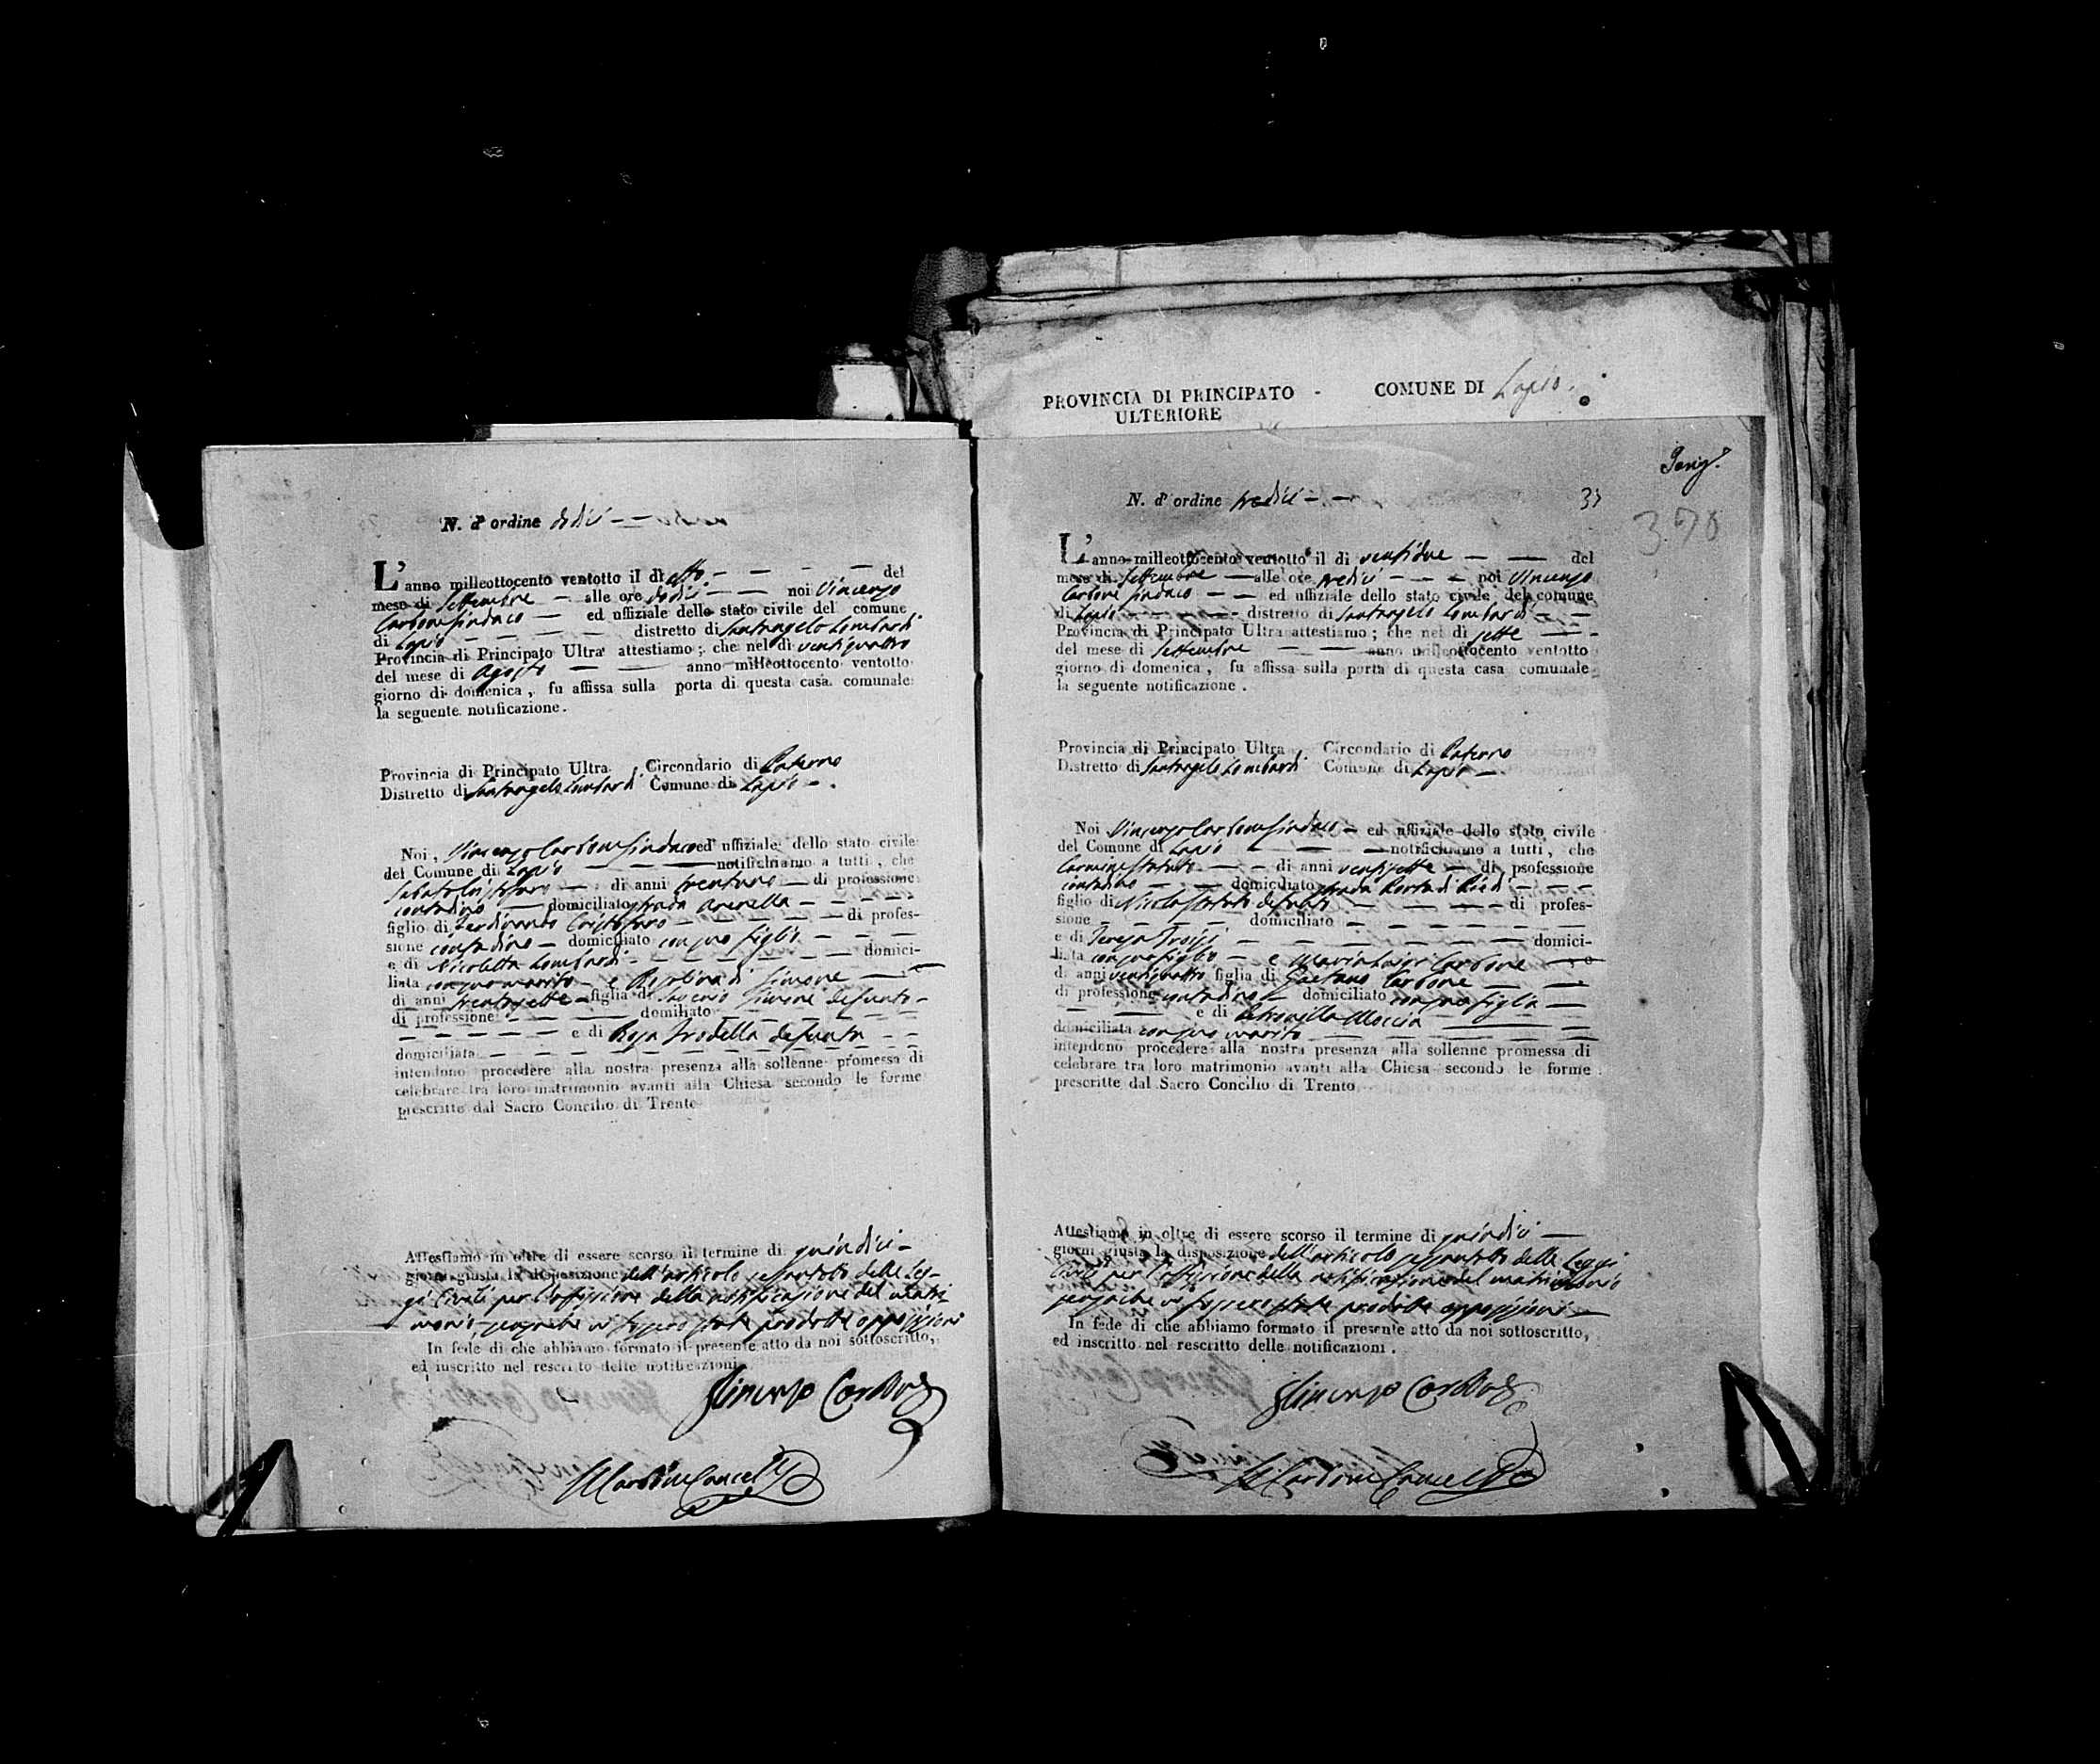 N. d'ordine dodici
L'anno milleottocento ventotto il di otto del
mese di Settembre alle ore dodici noi Vincenzo
Carbone Sindaco ed uffiziale dello stato civile del comune
di Lapio distretto di Santangelo Lombardi
Provincia di Principato Ultra attestiamo; che nel di ventiquattro
del mese di Agosto anno milleottocento ventotto
giorno di domenica, fu affissa sulla porta di questa casa comunale
la seguente notificazione.
Provincia di Principato Ultra. Circondario di Paterno
Distretto di Santangelo Lombardi Comune di Lapio
Noi, Vincenzo Carbone Sindaco ed uffiziale dello stato civile
del Comune di Lapio notifichiamo a tutti, che
Sabato Cristofaro di anni trentuno di professione
contadino domiciliato strada Arenella
figlio di Ferdinando Cristofaro di profes-
sione contadino domiciliato con suo figlio
e di Nicoletta Lombardi domici-
liata con suo marito e di Simone
di anni trentasette figlia di Saverio Simone defunto
di professione domiliato
e di Rosa Trodella defunta
domiciliata
intendono procedere alla nostra presenza alla sollenne promessa di
celebrare tra loro matrimonio avanti alla Chiesa secondo le forme
prescritte dal Sacro Concilio di Trento
Attestiamo in oltre di essere scorso il termine di quindici
giorni giusta la disposizione dell'articolo sessantotto delle Leg-
gi Civili per l'affissione della notificazione del matri-
monio, senzache vi fossero state prodotte opposizioni
In fede di che abbiamo formato il presente atto da noi sottoscritto,
ed inscritto nel rescritto delle notificazioni
Vincenzo Carbone
Carbone Cancell
PROVINCIA DI PRINCIPATO - COMUNE DI Lapio.
ULTERIORE
N. d'ordine tredici 37
370
L'anno milleottocento ventotto il di ventidue del
mese di Settembre alle ore tredici noi Vincenzo
Carbone Sindaco ed uffiziale dello stato civile del comune
di Lapio distretto di Santangelo Lombardi
Provincia di Principato Ultra attestiamo; che nel di sette
del mese di Settembre anno milleottocento ventotto
giorno di domenica, fu affissa sulla porta di questa casa comunale
la seguente notificazione.
Provincia di Principato Ultra Circondario di Paterno
Distretto di Santangelo Lombardi Comune di Lapio
Noi Vincenzo Carbone Sindaco ed uffiziale dello stato civile
del Comune di Lapio notifichiamo a tutti, che
Carmine Statuto di anni ventisette di psofessione
contadino domiciliato strada Porta di Piedi
figlio di Nicola Statuto defunto di profes-
sione domiciliato
e di Teresa Troisi domici-
liata con suo figlio e Maria Luigia Carbone
di anni ventiquattro figlia di Gaetano Carbone
di professione contadino domiciliato con sua figlia
e di Petronilla Moccia
domiciliata con suo marito
intendono procedere alla nostra presenza alla sollenne promessa di
celebrare tra loro matrimonio avanti alla Chiesa secondo le forme
prescritte dal Sacro Concilio di Trento
Attestiamo in oltre di essere scorso il termine di quindici
giorni giusta la disposizione dell'articolo sessantotto delle Leggi
Civili per l'affissione della notificazione del matrimonio
senzache vi fossero state prodotte opposizioni
In fede di che abbiamo formato il presente atto da noi sottoscritto,
ed inscritto nel rescritto delle notificazioni.
Vincenzo Carbone
Carbone Cancell